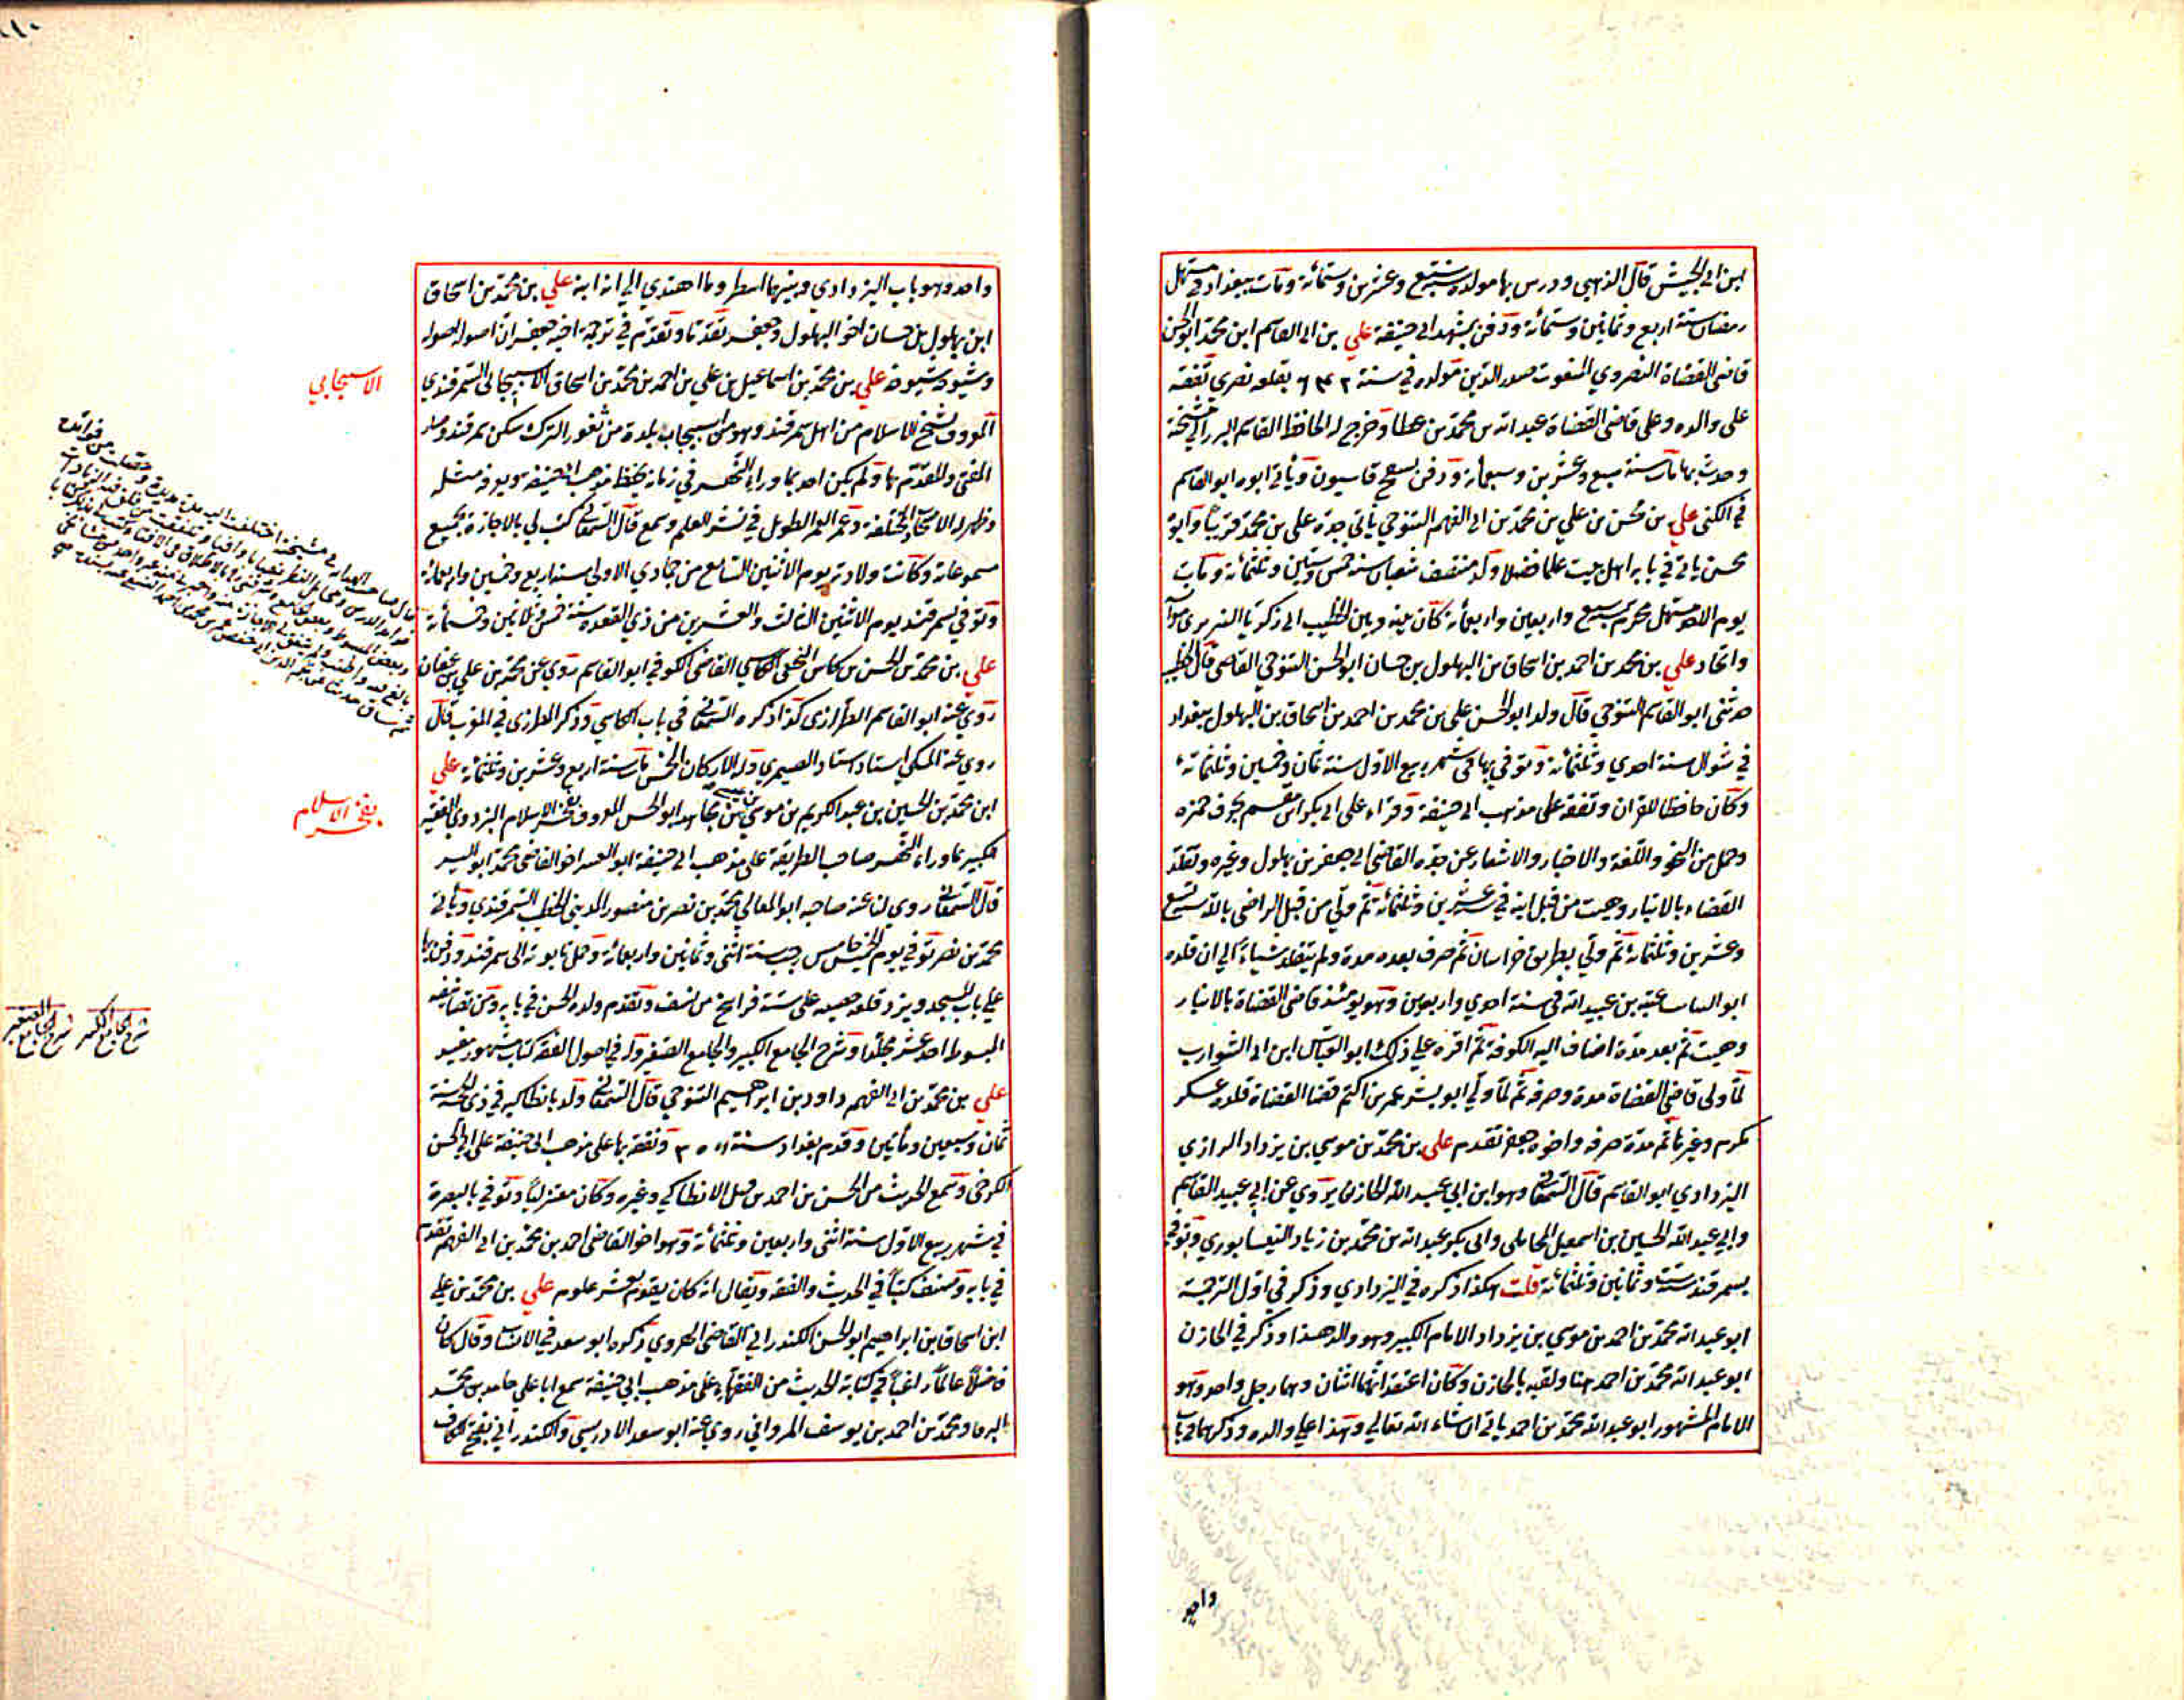 ابن ابي الجيش قال الذهبي ودرس بها مولده سنة سبع وعشرين وستمائة ومات ببغداد في مستهل
رمضان سنة اربع وثمانين وستمائة ودفن بمشهد ابي حنيفة علي بن ابي القاسم ابن محمد ابو الحسن
قاضي القضاة البصروي المنعوت صدر الدين مولده في سنة ٦٤٢ بقلعة بصرى تفقه
على والده وعلى قاضي القضاة عبد الله بن محمد بن عطا وخرج له الحافظ القاسم البرزالي مشيخة
وحدث بها مات سنة سبع وعشرين وسبعمائة ودفن بسفح قاسيون ويأتي ابوه ابو القاسم
في الكنى علي بن محسن بن علي بن محمد بن ابي الفهم التنوخي يأتي جده علي بن محمد قريبا وابوه
محسن ياتي في بابه اهل بيت علما فضلا ولد منتصف شعبان سنة خمس وستين وثلثمائة ومات
يوم الاحد مستهل محرم سبع واربعين واربعمائة كان بينه وبين الخطيب ابي زكريا التبريزي موانسة
واتحاد علي بن محمد بن احمد بن اسحاق بن البهلول بن حسان ابو الحسن التنوخي القاضي قال الخطيب
حدثني ابو القاسم التنوخي قال ولد ابو الحسن علي بن محمد بن احمد بن اسحاق بن البهلول ببغداد
في شوال سنة احدى وثلثمائة وتوفي بها في شهر ربيع الاول سنة ثمان وخمسين وثلثمائة
وكان حافظا للقران وتفقه على مذهب ابي حنيفة وقراء على ابي بكر ابن مقسم بحرف حمزه
وحمل من النحو واللغة والاخبار والاشعار عن جده القاضي ابي جعفر بن بهلول وغيره وتقلد
القضاء بالانبار وهيت من قبل ابيه في عشرين وثلثمائة ثم ولي من قبل الراضي بالله سنة تسع
وعشرين وثلثمائة ثم ولي بطريق خراسان ثم صرف بعد مدة ولم يتقلد شياء الى ان قلده
ابو السائب عتبة بن عبيد الله في سنة احدى واربعين وهو يومئذ قاضي القضاة بالانبار
وهيت ثم بعد مدة اضاف اليه الكوفة ثم اقره على ذلك ابو العباس ابن ابي الشوارب
لما ولى قاضي القضاة مدة وصرفه ثم لما ولي ابو بشر عمر بن اكثم قضا القضاة قلده عسكر
مكرم وغيرها ثم مدة صرفه واخوه جعفر تقدم علي بن محمد بن موسى بن يزداد الرازي
اليزدادي ابو القاسم قال السمعاني وهو ابن ابي عبد الله الخازن يروي عن ابي عبيد القاسم
وابي عبد الله الحسين بن اسمعيل المحاملي وابي بكر عبد الله بن محمد بن زياد النيسابوري وتوفي
بسمرقند سنة وثمانين وثلثمائة قلت هكذا ذكره في اليزدادي وذكر في اول الترجمة
ابو عبد الله محمد بن احمد بن موسى بن يزداد الامام الكبير وهو والد هذا وذكر في الخازن
ابو عبد الله محمد بن احمد هنا ولقبه بالخازن وكان اعتقد انهما اثنان وهما رجل واحد وهو
الامام المشهور ابو عبد الله محمد بن احمد ياتي ان شاء الله تعالى وهذا علي والده وذكرهما في باب
واحد
واحد وهو باب اليزدادي وبينهما اسطر وما اهتدى الى انه ابنه علي بن محمد بن اسحاق
ابن بهلول بن حسان اخو البهلول وجعفر تقدما وتقدم في ترجمة اخيه جعفر ان اصوله اصوله
وشيوخه شيوخه علي بن محمد بن اسماعيل بن علي بن احمد بن محمد بن اسحاق الاسبيجابي السمرقندي
المعروف بشيخ الاسلام من اهل سمرقند وهو من اسبيجاب بلدة من ثغور الترك سكن سمرقند وصار
المفتي والمقدم بها ولم يكن احد بما وراء النهر في زمانه يحفظ مذهب ابي حنيفة ويعرفه مثله
وظهر له الاصحاب المختلفة وعمر العمر الطويل في نشر العلم وسمع قال السمعاني كتب لي بالاجازة بجميع
مسموعاته وكانت ولادته يوم الاثنين السابع من جمادي الاولى سنة اربع وخمسين واربعمائة
وتوفي بسمرقند يوم الاثنين الثالث والعشرين من ذي القعدة سنة خمس وثلاثين وخمسمائة
علي بن محمد بن الحسن بن كاس النخعي الكاسي القاضي الكوفي ابو القاسم روى عن محمد بن علي بن عفان
روى عنه ابو القاسم الطرازي كذا ذكره السمعاني في باب الكاسي وذكر المطرزي في المغرب قال
روى عنه المكي استاد استاد الصيمري وله الاركان الخمس مات سنة اربع وعشرين وثلثمائة علي
ابن محمد بن الحسين بن عبد الكريم بن موسى بن عيسى بن مجاهد ابو الحسن المعروف بفخر الاسلام البزدوي الفقيه
الكبير بما وراء النهر صاحب الطريقة على مذهب ابي حنيفة ابو العسر اخو القاضي محمد ابو اليسر
قال السمعاني روى لنا عنه صاحبه ابو المعالي محمد بن نصر بن منصور المديني الخطيب السمرقندي وياتي
محمد بن نصر توفي يوم الخميس خامس رجب سنة اثنتي وثمانين واربعمائة وحمل تابوته الى سمرقند ودفن بها
على باب المسجد وبزده قلعة حصينة على ستة فراسخ من نسف وتقدم ولده الحسن في بابه ومن تصانيفه
المبسوط احد عشر مجلدا وشرح الجامع الكبير والجامع الصغير وله في اصول الفقه كتاب مشهور مفيد
علي بن محمد بن ابي الفهم داود بن ابراهيم التنوخي قال السمعاني ولد بانطاكية في ذي الحجة سنة
ثمان وسبعين ومأتين وقدم بغداد سنة ٣٠٦ وتفقه بها على مذهب ابي حنيفة على ابي الحسن
الكرخي وسمع الحديث من الحسن بن احمد بن فيل الانطاكي وغيره وكان معتزليا وتوفي بالبصرة
في شهر ربيع الاول سنة اثنتي واربعين وثلثمائة وهو اخو القاضي احمد بن محمد بن ابي الفهم تقدم
في بابه وصنف كتبا في الحديث والفقه ويقال انه كان يقوم بعشر علوم علي بن محمد بن علي
ابن اسحاق بن ابراهيم ابو الحسن الكندراني القاضي الهروي ذكره ابو سعد في الانساب وقال كان
فاضلا عالما راغبا في كتابة الحديث من الفقهاء على مذهب ابي حنيفة سمع ابا علي حامد بن محمد
الرفا ومحمد بن احمد بن يوسف المرواني روى عنه ابو سعد الادريسي والكندراني بفتح الكاف
الاسبيجابي
بفخر الاسلام
شرح الجامع الكبير شرح الجامع الصغير